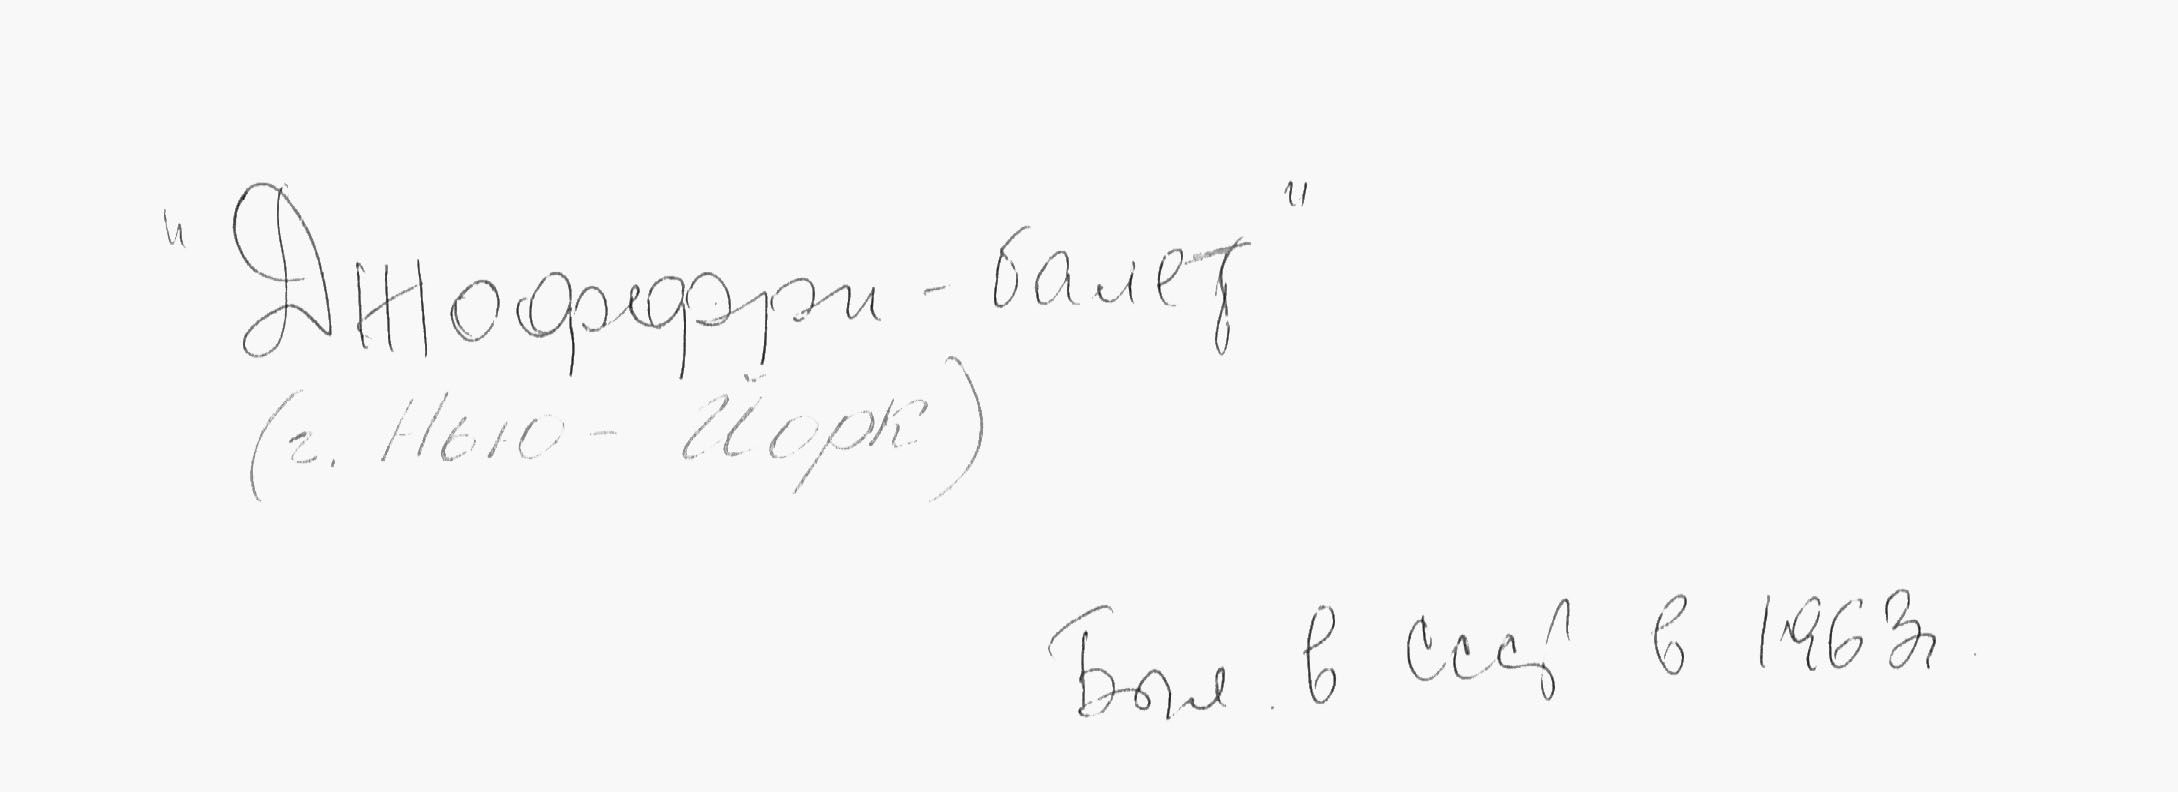 "Джоффри-балет"
(г. Нью-Йорк)
Был. в СССР в 1963г.